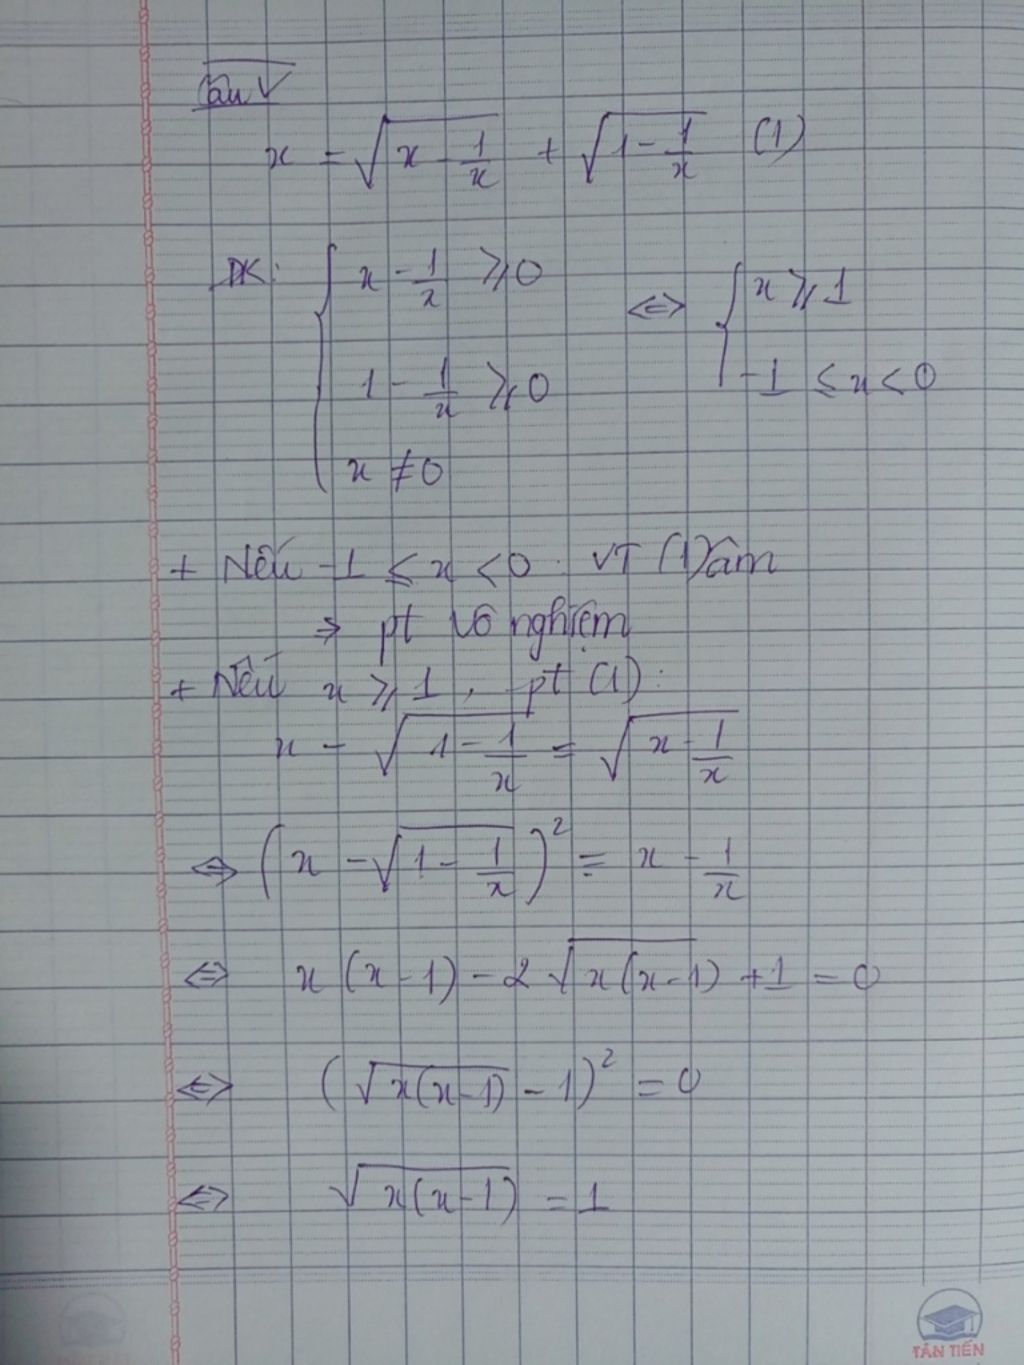 Câu V
x = √(x - 1/x) + √(1 - 1/x) (1)
ĐK: { x - 1/x ⩾ 0
1 - 1/x ⩾ 0
x ≠ 0
<=> { x ⩾ 1
-1 ≤ x < 0
+ Nếu -1 ≤ x < 0. VT (1) âm
⇒ pt vô nghiệm
+ Nếu x ⩾ 1, pt (1):
x - √(1 - 1/x) = √(x - 1/x)
<=> (x - √(1 - 1/x))² = x - 1/x
<=> x(x-1) - 2√(x(x-1)) + 1 = 0
<=> (√(x(x-1)) - 1)² = 0
<=> √(x(x-1)) = 1
TÂN TIẾN